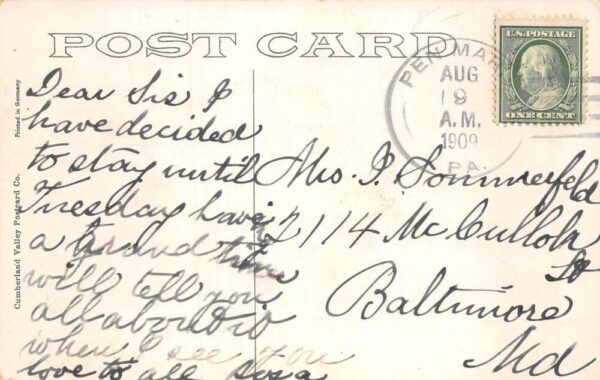 POST CARD
PEN MAR
AUG
9
A.M.
1909
PA.
U.S. POSTAGE
ONE CENT
Printed in Germany
Cumberland Valley Postcard Co.
Dear Sis I
have decided
to stay until
Tuesday having
a grand time
will tell you
all about it
when I see you
love to all Rosa
Mrs. I. Sommerfeld
2114 McCulloh
St
Baltimore
Md